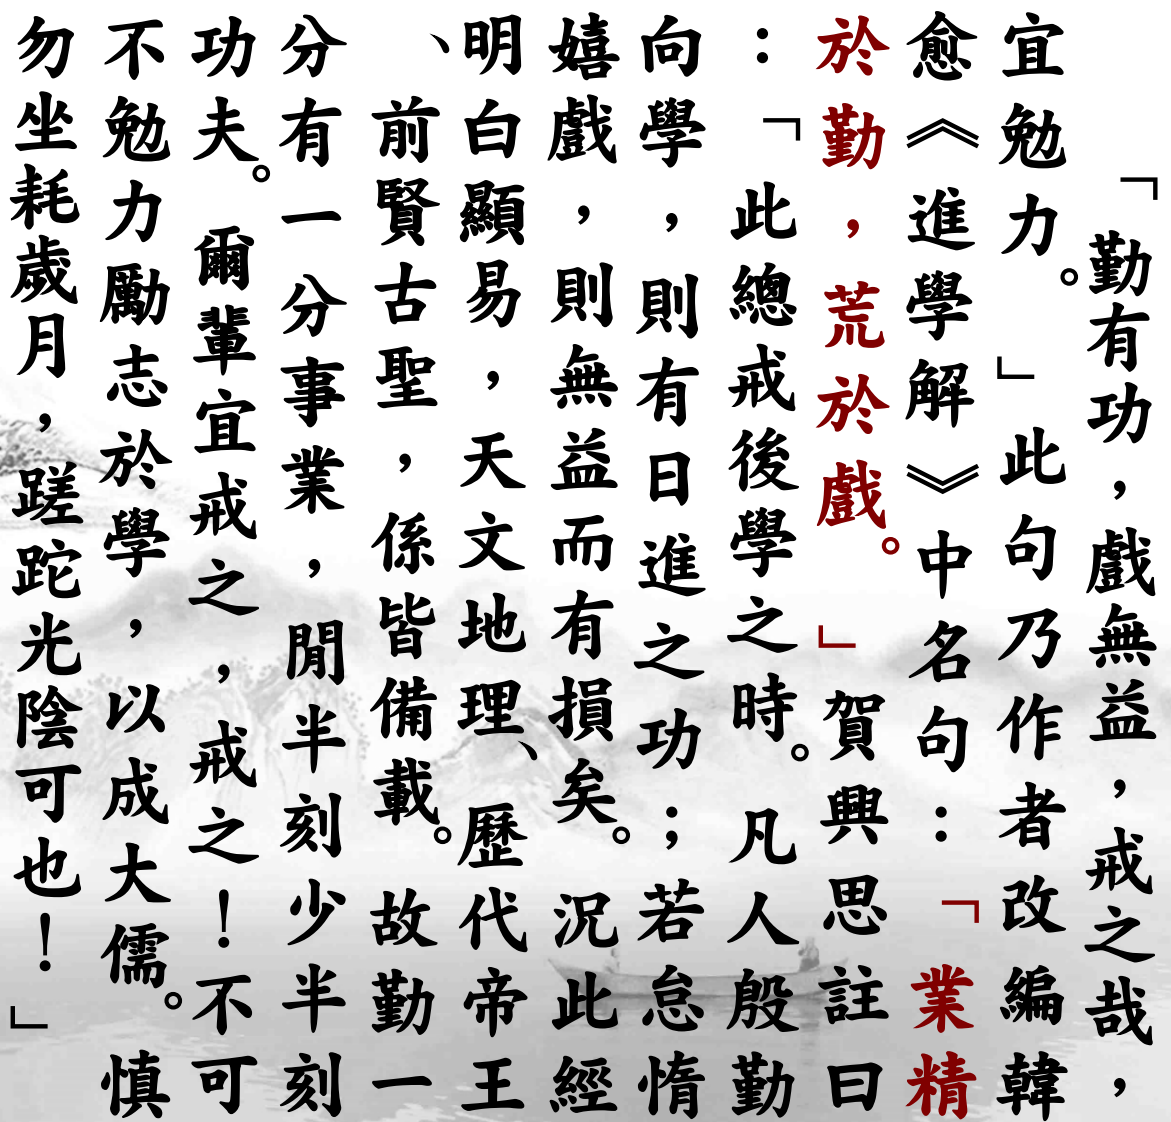 「勤有功，戲無益，戒之哉，
宜勉力。」此句乃作者改編韓
愈《進學解》中名句：「業精
於勤，荒於戲。」賀興思註曰
：「此總戒後學之時。凡人殷勤
向學，則有日進之功；若怠惰
嬉戲，則無益而有損矣。況此經
明白顯易，天文地理、歷代帝王
、前賢古聖，係皆備載。故勤一
分有一分事業，閒半刻少半刻
功夫。爾輩宜戒之，戒之！不可
不勉力勵志於學，以成大儒。慎
勿坐耗歲月，蹉跎光陰可也！」